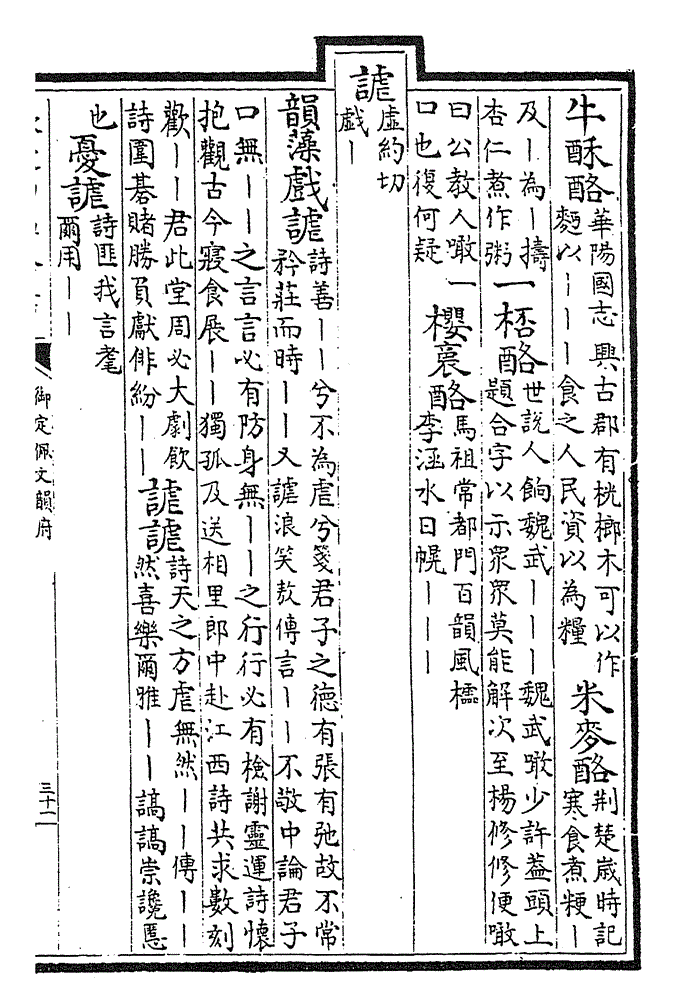 牛酥酪華陽國志興古郡有桄榔木可以作
麪以｜｜｜食之人民資以為糧
米麥酪荆楚歲時記
寒食煮粳｜
及｜為｜擣
杏仁煮作粥
一桮酪世說人餉魏武｜｜｜魏武噉少許葢頭上
題合字以示眾眾莫能解次至楊修修便噉
曰公教人噉一
口也復何疑
櫻裛酪馬祖常都門百韻風櫺
李洭水日幌｜｜｜
謔虛約切
戲｜
韻藻戲謔詩善｜｜兮不為虐兮箋君子之德有張有弛故不常
矜莊而時｜｜又謔浪笑敖傳言｜｜不敬中論君子
口無｜｜之言言必有防身無｜｜之行行必有檢謝靈運詩懷
抱觀古今寢食展｜｜獨孤及送相里郎中赴江西詩共求數刻
歡｜｜君此堂周必大劇飲
詩圍棊賭勝負獻俳紛｜｜
謔謔詩天之方虐無然｜｜傳｜｜
然喜樂爾雅｜｜謞謞崇讒慝
也
憂謔詩匪我言耄
爾用｜｜
御定佩文韻府
三十二